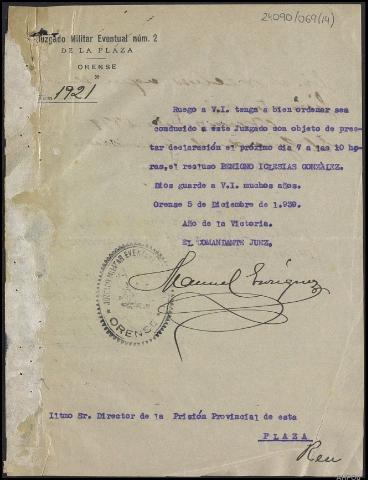 24090/069(14)
Juzgado Militar Eventual núm. 2
DE LA PLAZA
ORENSE
Núm. 1921
Ruego a V.I. tenga a bien ordenar sea
conducido a este Juzgado con objeto de pres-
tar declaración el próximo dia 7 a las 10 ho-
ras, el recluso BENIGNO IGLESIAS GONZÁLEZ.
Dios guarde a V.I. muchos años.
Orense 5 de Diciembre de 1.939.
Año de la Victoria.
EL COMANDANTE JUEZ,
JUZGADO MILITAR EVENTUAL
ORENSE
Manuel Enríquez
Iltmo Sr. Director de la Prisión Provincial de esta
PLAZA